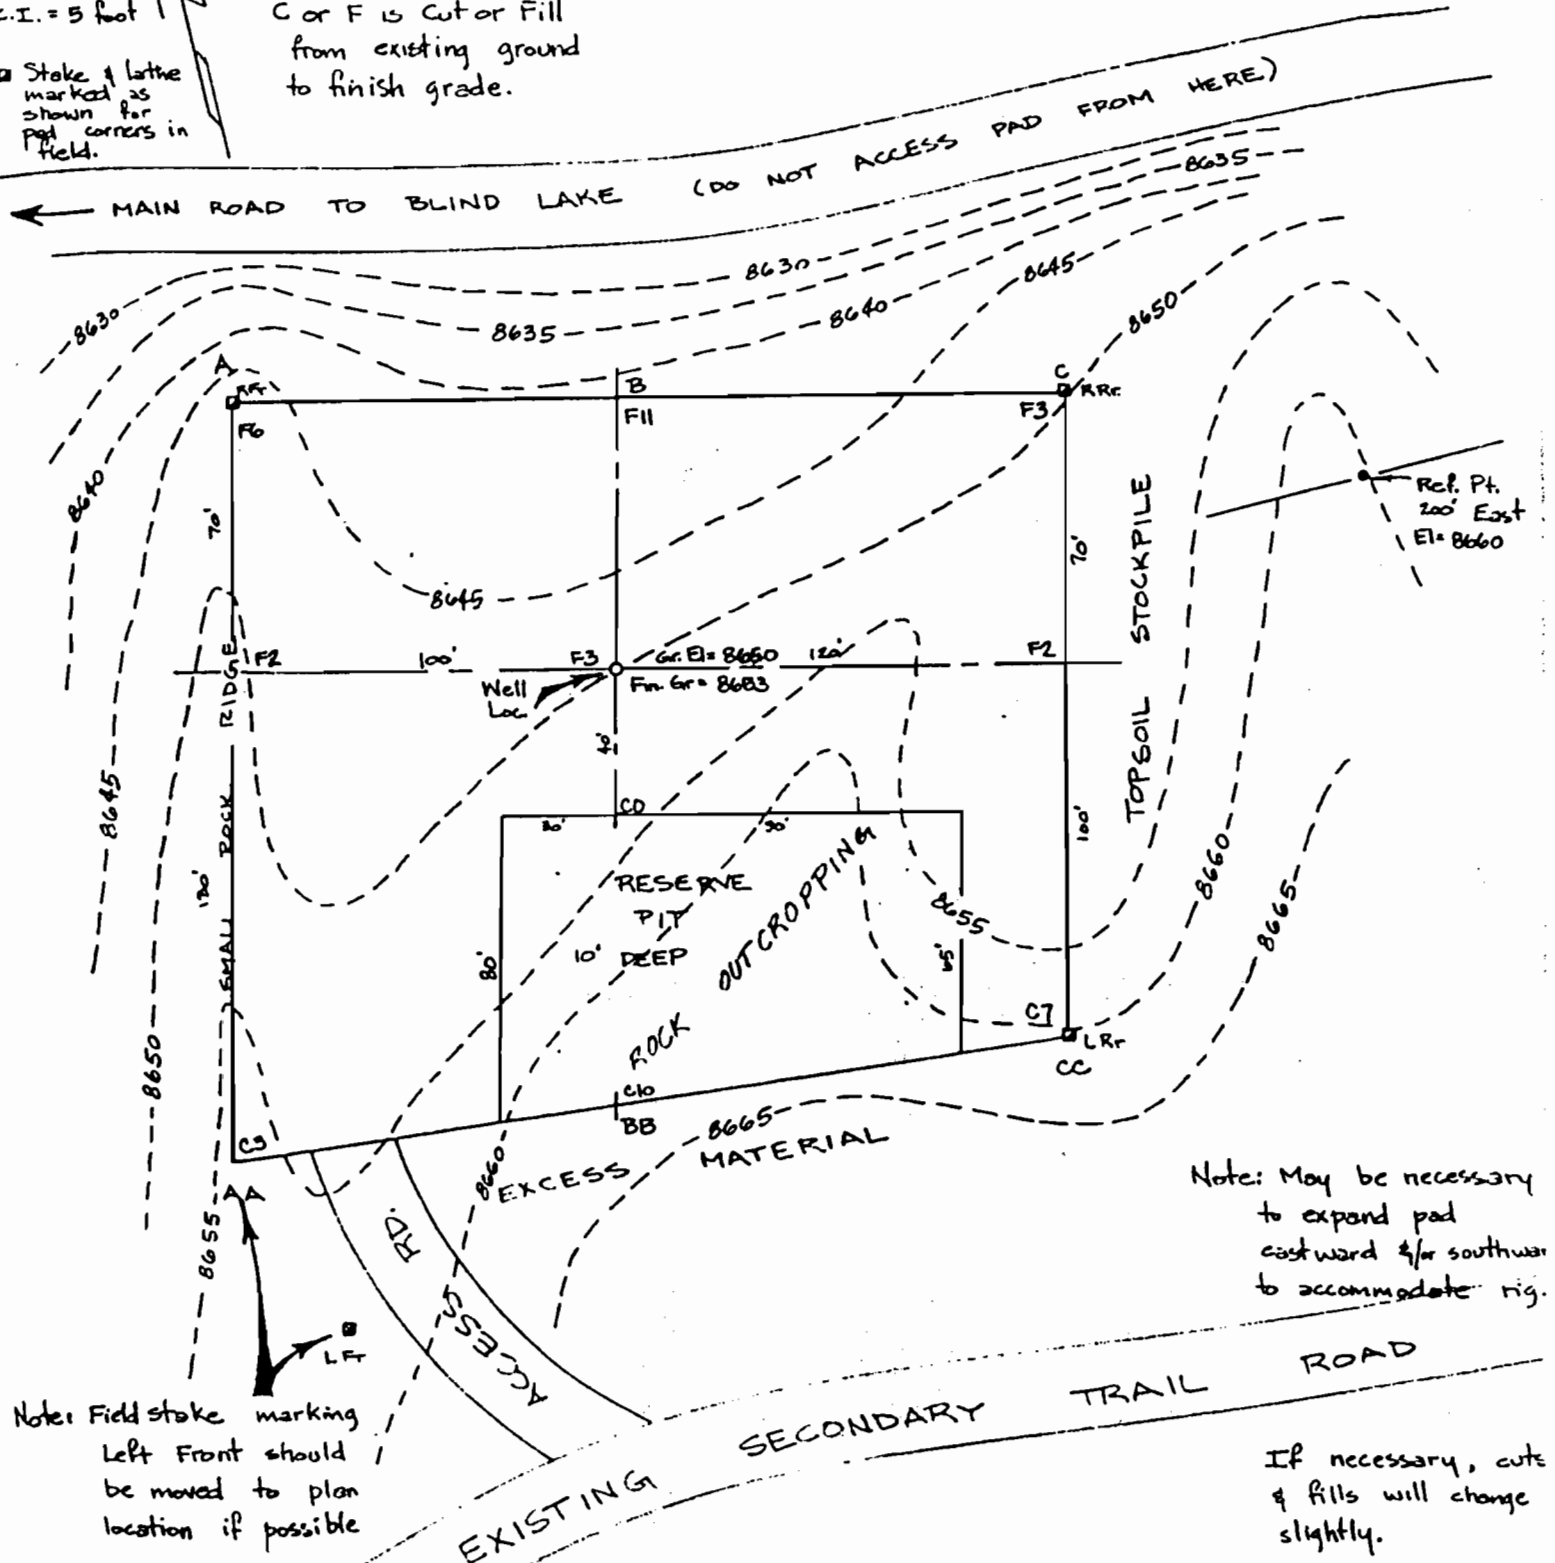 C.I. = 5 foot
Stake & lathe
marked as
shown for
pad corners in
field.
C or F is Cut or Fill
from existing ground
to finish grade.
MAIN ROAD TO BLIND LAKE (DO NOT ACCESS PAD FROM HERE)
8635
8630
8645
8630
8635
8640
8650
A
RFr
F6
B
F11
C
RRr.
F3
8640
70'
70'
TOPSOIL STOCKPILE
Ref. Pt.
200' East
El= 8660
8645
F2
100'
F3
Gr. El= 8650
120'
F2
Well
Loc.
Fin. Gr= 8653
40'
SMALL ROCK RIDGE
8645
C0
30'
90'
100'
120'
RESERVE
PIT
10' DEEP
80'
65'
ROCK OUTCROPPING
8655
8660
8665
8650
C7
LRr
CC
C10
BB
C3
AA
8665
EXCESS MATERIAL
8660
8655
ACCESS RD.
LFr
Note: May be necessary
to expand pad
eastward &/or southwar
to accommodate rig.
Note: Field stake marking
Left Front should
be moved to plan
location if possible
EXISTING SECONDARY TRAIL ROAD
If necessary, cuts
& fills will change
slightly.